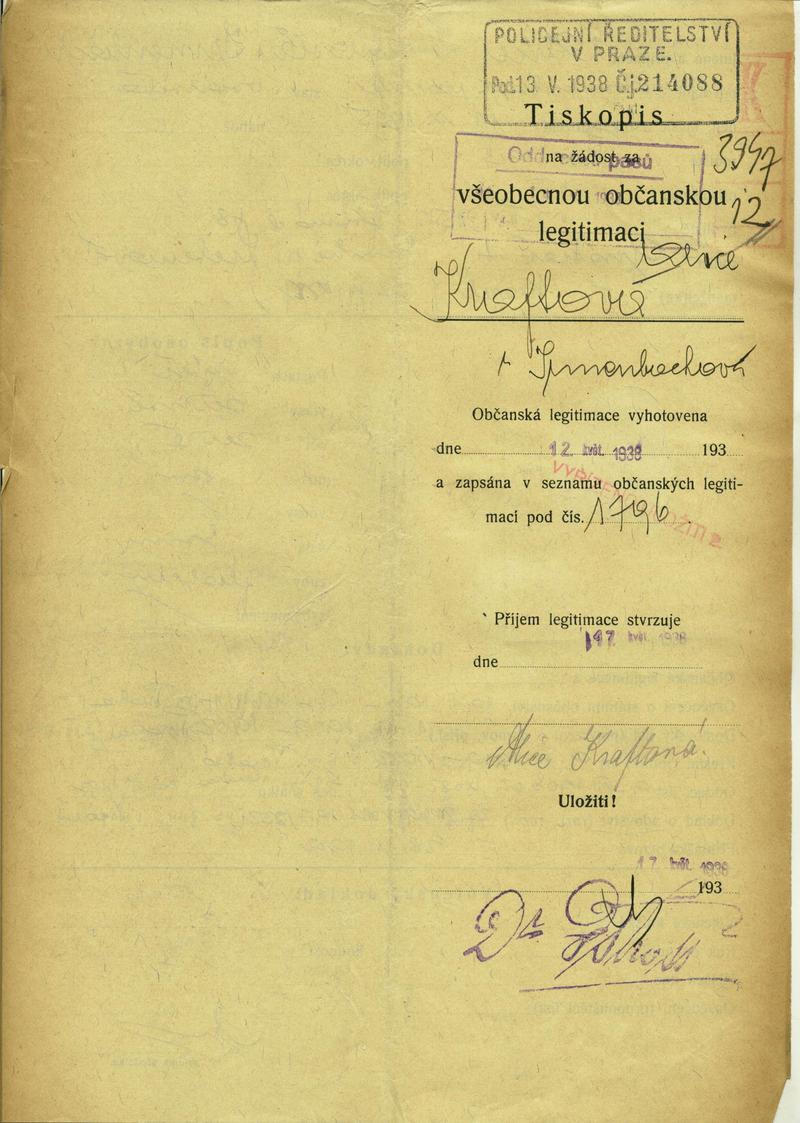 POLICEJNÍ ŘEDITELSTVÍ
V PRAZE.
Pod. 13 V. 1938 Čj. 214088
Tiskopis
na žádost za
pasů
3947
12
všeobecnou občanskou
legitimaci
Alice
Kraftová
Občanská legitimace vyhotovena
dne 12. kvě. 1938 193
a zapsána v seznamu občanských legiti-
mací pod čís. 1796.
Příjem legitimace stvrzuje
17 kvě. 1938
dne
Alice Kraftová.
Uložiti!
17 kvě. 1938
193
Dr